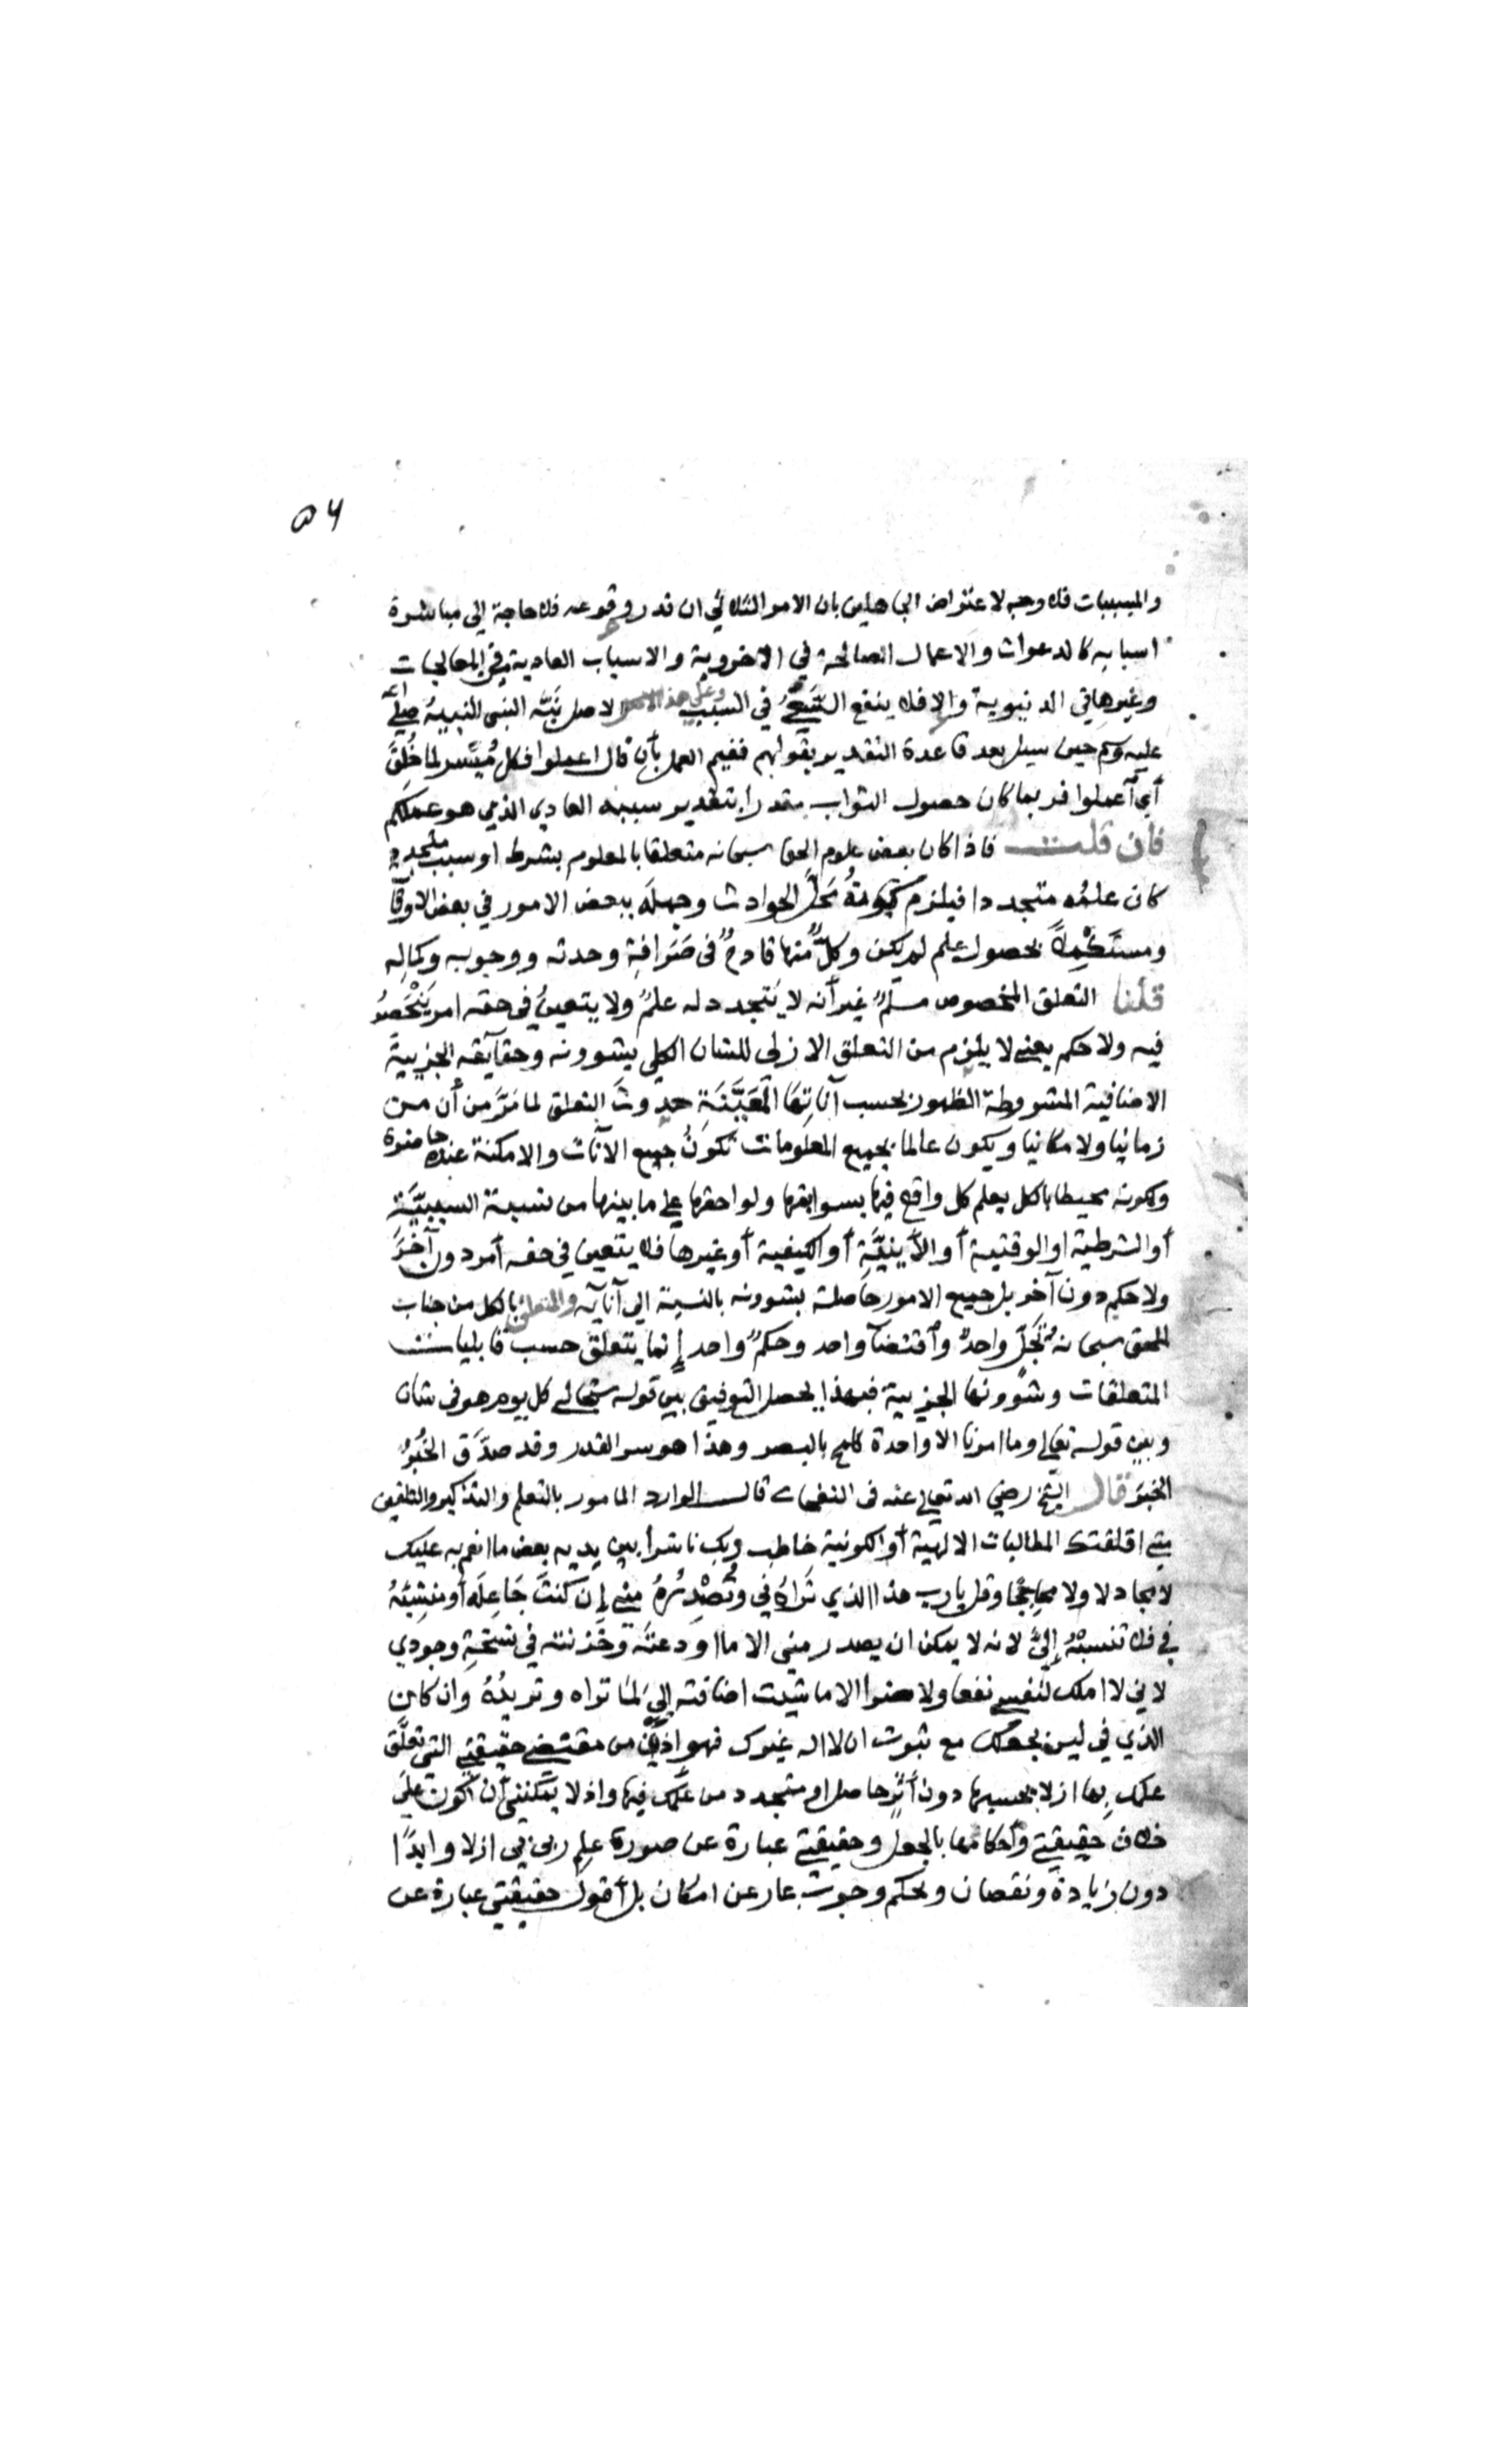 ٥٦
والمسببات فلا وجه لاعتراض الجاهلين بان الامر الفلاني ان قدر وقوعه فلا حاجة الي مباشرة
اسبابه كالدعوات والاعمال الصالحة في الاخروية والاسباب العادية في المعالجات
وغيرها في الدنيوية والا فلا ينفع السَّعْيُ في السبب وعلي هذا الاصل نَبَّه النبي النبيهُ صلي الله
عليه وسم حين سيل بعد قاعدة التقدير بقولهم ففيم العمل بأن قال اعملوا فكل مُيَسَّر لما خُلِقَ
أي اعملوا فربما كان حصول الثواب مقدرا بتقدير سببه العادي الذي هو عملكم
فان قلت فاذا كان بعض علوم الحق سبحانه متعلقا بالمعلوم بشرط او سبب متجدد
كان علمُه متجددا فيلزم كونهُ مَحَلَّ الحوادث وجهلَه ببعض الامور في بعض الاوقا
ومستكمِلاً بحصول علم لم يكن وكلٌّ منها قادحٌ في صَرَافةِ وحدته ووجوبه وكماله
قلنا التعلق المخصوص مسلَّمٌ غير أنه لا يَتجدد له علمٌ ولا يتعينُ في حقه امر يَنْحَصرُ
فيه ولا حكم يعني لا يلزم من التعلق الازلي للشان الكلي بشوونه وحقايقه الجزيية
الاضافية المشروطة الظهور بحسب آناتِها المُعَيَّنَةِ حدوثُ التعلق لما مَرَّ من أن من
زمانيا ولا مكانيا ويكون عالما بجميع المعلومات تكونُ جميع الآنات والامكنة عنده حاضرة
وكونه محيطا بالكل يعلم كل واقع فيها بسوابقها ولواحقها علي ما بينها من نسبة السببيَّة
أو الشرطية او الوقتية أو الأَينيَّةِ أو الكيفية أو غيرها فلا يتعين في حقه أمر دون آخَرَ
ولا حكم دون آخر بل جميع الامور حاصلة بشوونه بالنسبة الي آناته والمتعلق بالكل من جناب
الحق سبحانه تَجَلٍّ واحدٌ وٱقتضآ واحد وحكمٌ واحد إنما يتعلق حسب قابليات
المتعلقات وشوونها الجزيية فبهذا يحصل التوفيق بين قوله تعالي كل يوم هو في شان
وبين قوله تعالي وما امرنا الا واحدة كلمح بالبصر وهذا هو سر القدر وقد صدَّق الخُبْرُ
الخبرَ قال الشيخ رضي الله تعالي عنه في النفحات قال الوارد المامور بالتعلم والتذكير والتلقين
متي اقلقتك المطالبات الالهية أو الكونية خاطب ربك ناشرا بين يديه بعض ما انعم به عليك
لا مجادلا ولا محاججًا وقل يا رب هذا الذي تَراهُ فيَّ وتُصْدِرُهُ مني إن كنتَ جَاعِلَه أو منشِئَهُ
فيَّ فلا تنسبْهُ إليَّ لانه لا يمكن ان يصدر مني الا ما اودعتَه وخَزنته في نسخةِ وجودي
لاني لا املك لنفسي نفعا ولا ضرا الا ما شيت اضافته الِيَّ لما تراه وتريدُهُ وان كان
الذي فيَّ ليس بجعلك مع ثبوت ان لا اله غيرك فهو اذًا من مقتضي حقيقتي التي تعلَّق
علمك بِها ازلا بحسبها دون أثرٍ حاصل او متجدد من علمك فيها واذ لا يمكنني أن أكون علي
خلاف حقيقتي وأحكامها بالجعل وحقيقتي عبارة عن صورة علم ربي بي ازلا وابدًا
دون زيادة ونقصان وبحكم وجوب عار عن امكان بل أقول حقيقتي عبارة عن